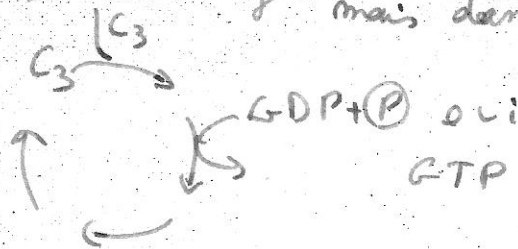 mais dan
C3
C3
GDP+P oui
GTP